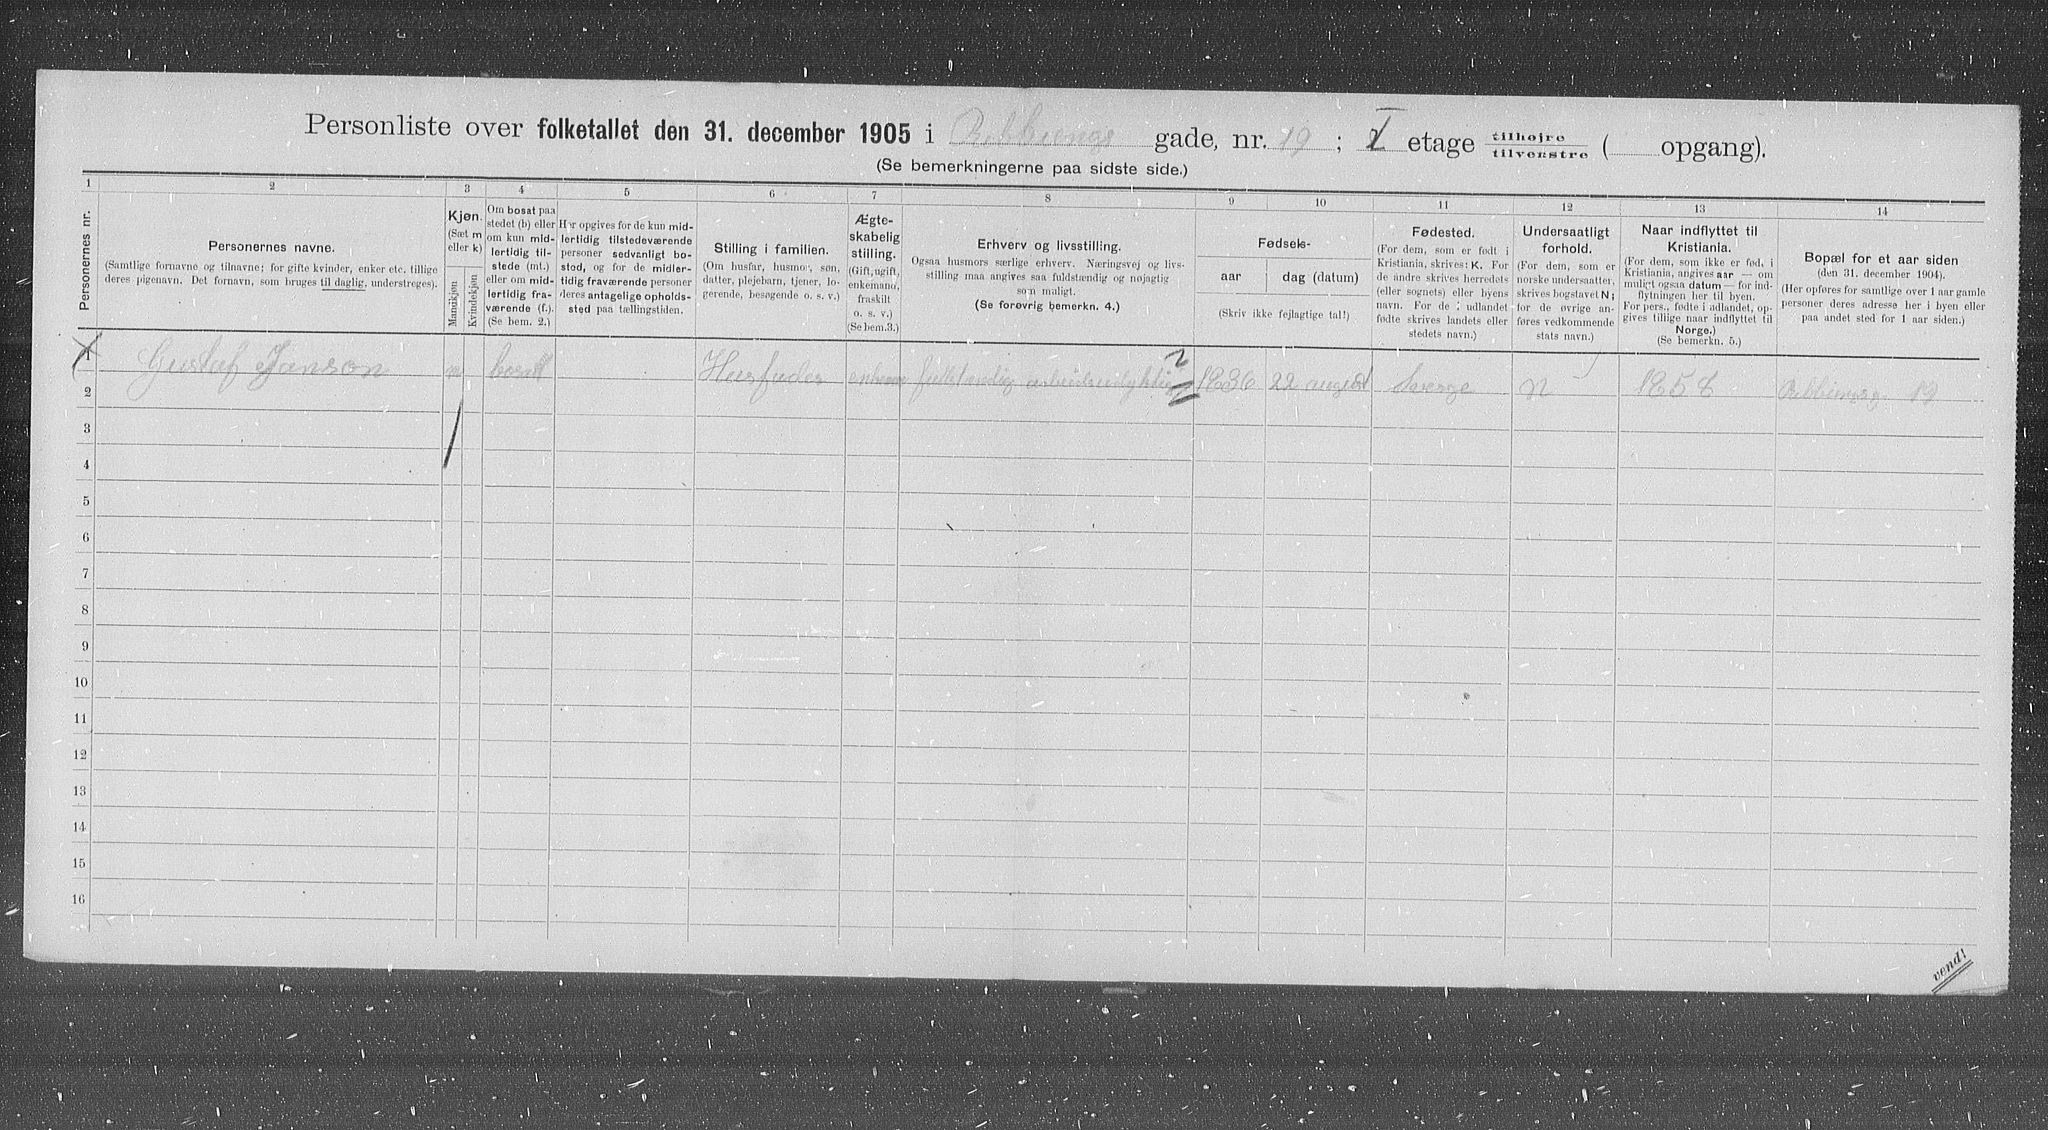 Personliste over folketallet den 31. december 1905 i Rebbiengs gade, nr. 19 ; I etage tilhøjre / tilvenstre ( opgang).
(Se bemerkningerne paa sidste side.)
1 2 3 4 5 6 7 8 9 10 11 12 13 14
Personernes nr.
Personernes navne.
(Samtlige fornavne og tilnavne; for gifte kvinder, enker etc. tillige
deres pigenavn. Det fornavn, som bruges til daglig, understreges).
Kjøn.
(Sæt m
eller k)
Mandkjøn
Kvindekjøn
Om bosat paa
stedet (b) eller
om kun mid-
lertidig til-
stede (mt.)
eller om mid-
lertidig fra-
værende (f.).
(Se bem. 2.)
Her opgives for de kun mid-
lertidig tilstedeværende
personer sedvanligt bo-
sted, og for de midler-
tidig fraværende personer
deres antagelige opholds-
sted paa tællingstiden.
Stilling i familien.
(Om husfar, husmor, søn,
datter, plejebarn, tjener, lo-
gerende, besøgende o. s. v.)
Ægte-
skabelig
stilling.
(Gift, ugift,
enkemand,
fraskilt
o. s. v.)
(Se bem. 3.)
Erhverv og livsstilling.
Ogsaa husmors særlige erhverv. Næringsvej og livs-
stilling maa angives saa fuldstændig og nøjagtig
som muligt.
(Se forøvrig bemerkn. 4.)
Fødsels-
aar dag (datum)
(Skriv ikke fejlagtige tal!)
Fødested.
(For dem, som er født i
Kristiania, skrives: K. For
de andre skrives herredets
(eller sognets) eller byens
navn. For de i udlandet
fødte skrives landets eller
stedets navn.)
Undersaatligt
forhold.
(For dem, som er
norske undersaatter,
skrives bogstavet N;
for de øvrige an-
føres vedkommende
stats navn.)
Naar indflyttet til
Kristiania.
(For dem, som ikke er fød. i
Kristiania, angives aar — om
muligt ogsaa datum — for ind-
flytningen her til byen.
For pers., fødte i udlandet, op-
gives tillige naar indflyttet til
Norge.)
(Se bemerkn. 5.)
Bopæl for et aar siden
(den 31. december 1904).
(Her opføres for samtlige over 1 aar gamle
personer deres adresse her i byen eller
paa andet sted for 1 aar siden.)
1 Gustaf Janson m bosatt Husfader fulstendig arbeidsudyktig 2 1836 22 august Sverge N 1858 Rebbingsg. 19
2
3
4
5
6
7
8
9
10
11
12
13
14
15
16
vend!